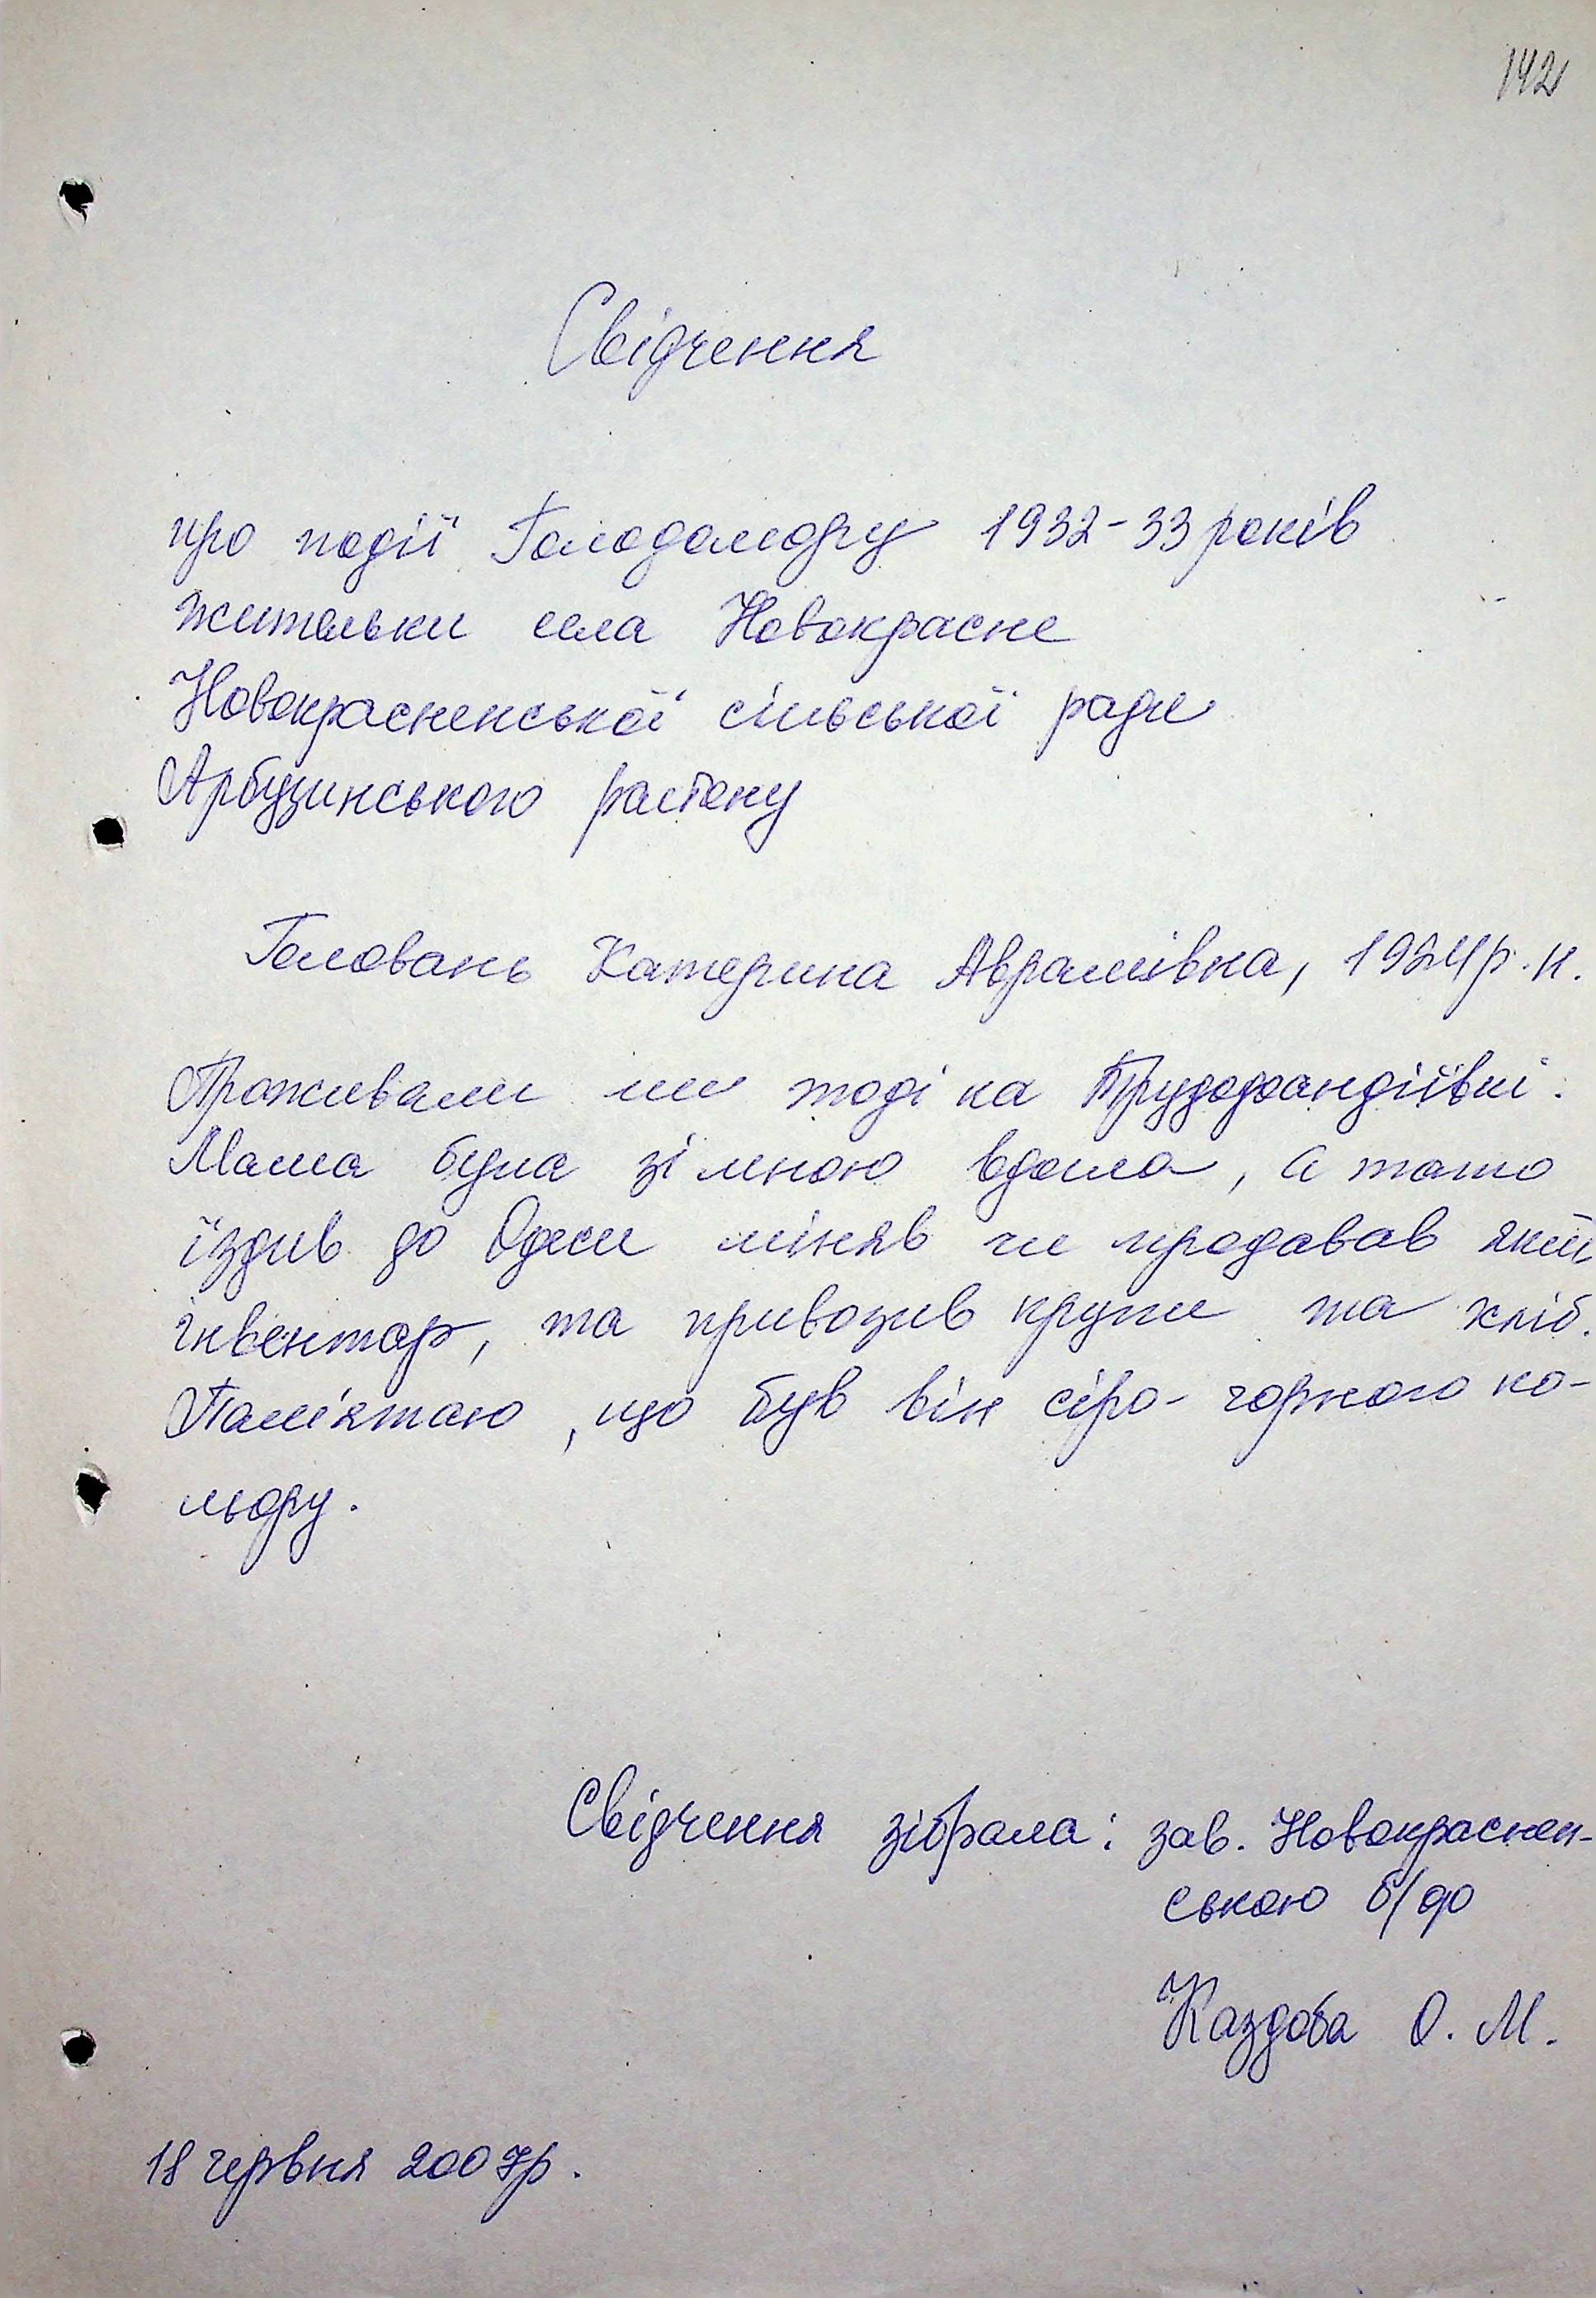 142
Свідчення
про події Голодомору 1932-33 років
жительки села Новокрасне
Новокрасненської сільської ради
Арбузинського району
Головань Катерина Аврамівна, 1924 р. н.
Проживали ми тоді на
Мама була зі мною вдома, а тато
їздив до Одеси міняв чи продавав який
інвентар, та привозив крупи та хліб.
Пам'ятаю, що був він сіро-чорного ко-
льору.
Свідчення зібрала: зав. Новокраснен-
ською б/ф
Каздоба О. М.
18 червня 2007р.